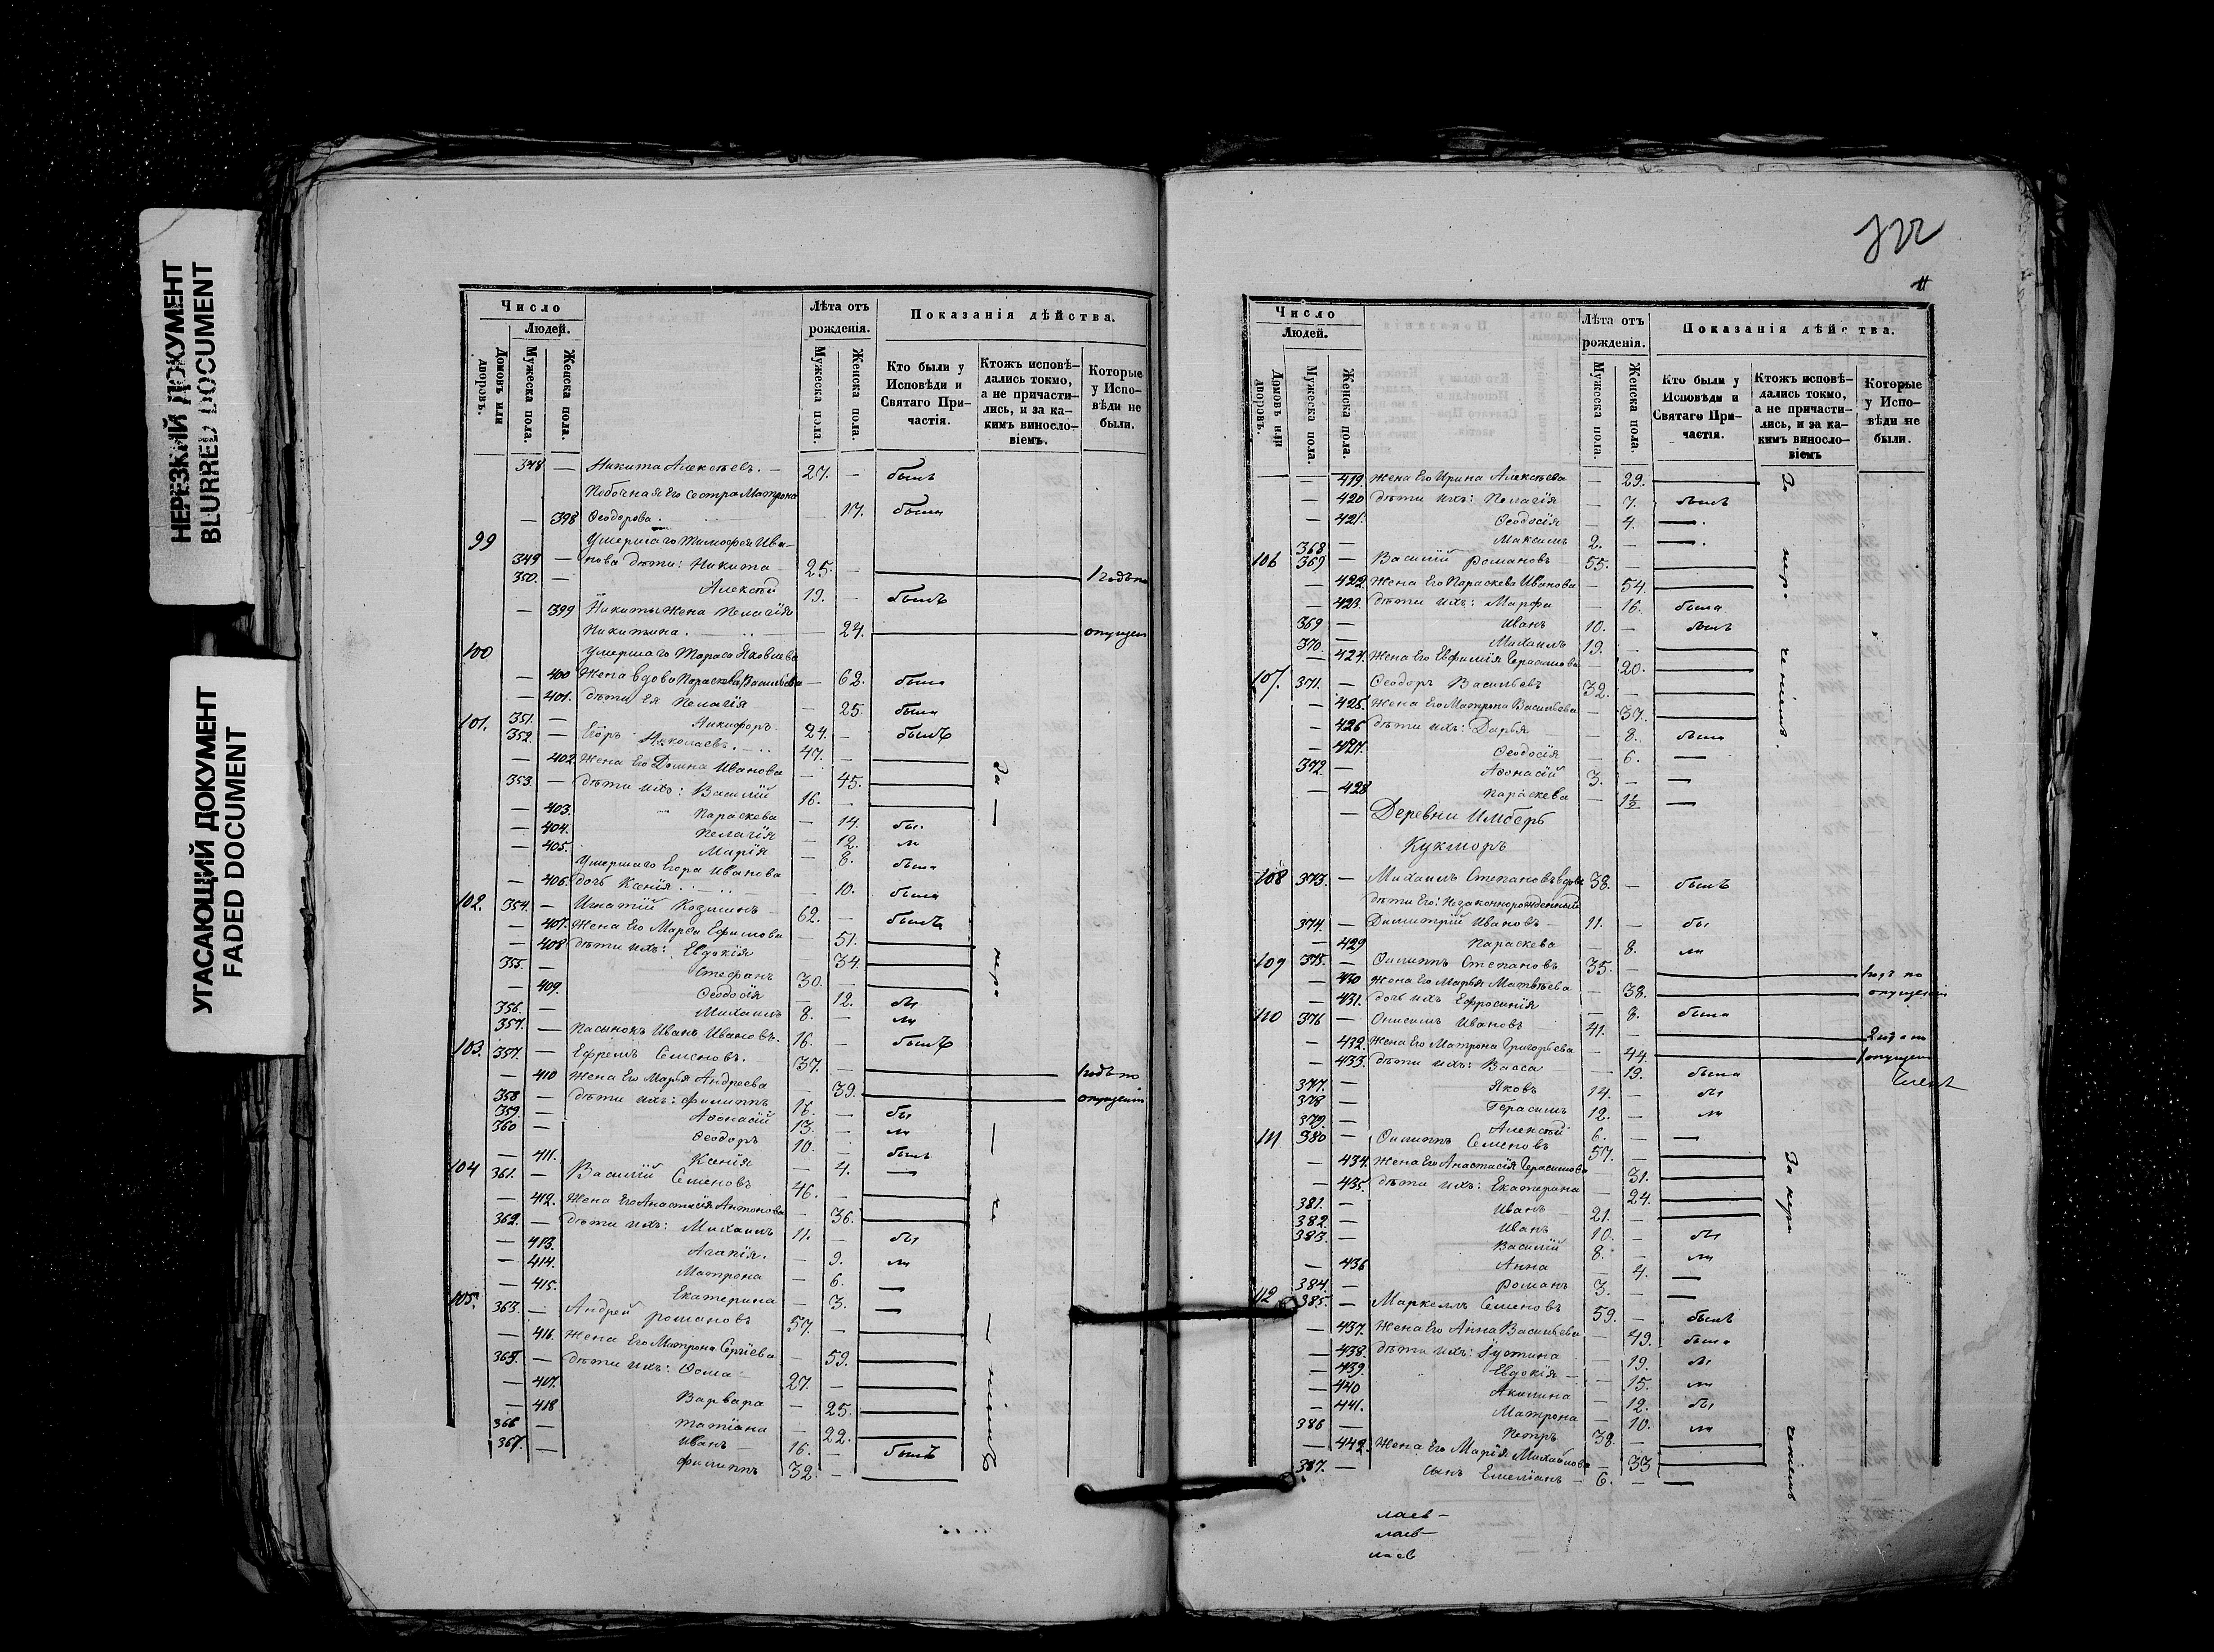 НЕРЕЗКИЙ ДОКУМЕНТ
BLURRED DOCUMENT
УГАСАЮЩИЙ ДОКУМЕНТ
FADED DOCUMENT
Число
Людей.
Домовъ или дворовъ.
Мужеска пола.
Женска пола.
Лѣта отъ рожденія.
Мужеска пола.
Женска пола.
Показанія дѣйства.
Кто были у Исповѣди и Святаго Причастія.
Ктожъ исповѣ-
дались токмо,
а не причасти-
лись, и за ка-
кимъ винносло-
віемъ.
Которые
у Испо-
вѣди не
были.
348 — Никита Алексѣевъ. — 27. — былъ
Побочная его сестра Матрона
— 398 Ѳеодорова. — 17. была
99 Умершаго Тимофея Ива-
349 — нова дѣти: Никита 25. — 1 годъ по
350. — Алексѣй 19. — былъ
— 399 Никиты жена Пелагія
Никитина. — 24. опущен
100 Умершаго Тараса Яковлева
— 400 жена вдова Параскева Васильева — 62. была
— 401. дѣти ея Пелагія — 25. была
351. — Никифоръ 24. — былъ
101. 352. — Егоръ Николаевъ. 47. —
— 402 жена его Домна Иванова — 45.
353. — дѣти ихъ: Василій 16. —
— 403. Параскева — 14. бы
— 404. Пелагія — 12. ли
— 405. Марія — 8. была
Умершаго Егора Иванова
— 406. дочь Ксенія — 10. была
102. 354. — Игнатій Козминъ 62. — былъ
— 407. жена его Марѳа Ефимова — 51.
— 408 дѣти ихъ: Евдокія — 34.
355. — Стефанъ 30. —
— 409. Ѳеодосія — 12. бы
356. — Михаилъ 8. — ли
357. — пасынокъ Иванъ Ивановъ. 16. — былъ
103. 357. — Ефремъ Семеновъ. 37. — 1 годъ по
— 410 жена его Марья Андреева — 39. опущенію
358 — дѣти ихъ: Филиппъ 16. — бы
359. — Аѳонасій 13. — ли
360 — Ѳеодоръ 10. — былъ
— 411. Ксенія — 4. —
104 361. — Василій Семеновъ 46. —
— 412. жена его Анастасія Антонова — 36.
362. — дѣти ихъ: Михаилъ 11. — бы
— 413. Агапія. — 9. ли
— 414. Матрона — 6. —
— 415. Екатерина — 3. —
105. 363. — Андрей Романовъ 57. —
— 416. жена его Матрона Сергіева — 59.
365. — дѣти ихъ: Ѳома 27. —
— 417. Варвара — 25.
— 418 Татіана — 22.
366 — Иванъ 16. — былъ
367. — Филиппъ 32. —
За — нера — че — ніемъ
722
11
Число
Людей.
Домовъ или дворовъ.
Мужеска пола.
Женска пола.
Лѣта отъ рожденія.
Мужеска пола.
Женска пола.
Показанія дѣйства.
Кто были у
Исповѣди и
Святаго При-
частія.
Ктожъ исповѣ-
дались токмо,
а не причасти-
лись, и за ка-
кимъ винносло-
віемъ
Которые
у Испо-
вѣди не
были.
— 419 жена его Ирина Алексѣева — 29.
— 420 дѣти ихъ: Пелагія — 7. былъ
— 421. Ѳеодосія — 4. —
368 — Максимъ 2. — —
106 369 — Василій Романовъ 55. —
— 422 жена его Параскева Иванова — 54.
— 423. дѣти ихъ: Марѳа — 16. была
369 — Иванъ 10. — былъ
370. — Михаилъ 19. —
— 424. жена его Евфимія Герасимова — 20.
107. 371. — Ѳеодоръ Васильевъ 32. —
— 425. жена его Матрона Васильева — 37.
— 426 дѣти ихъ: Дарья — 8. была
— 427. Ѳеодосія — 6. —
372. — Аѳонасій 3. — —
— 428 Параскева — 1½ —
Деревни Имберь
Кукморъ
108 373. — Михаилъ Степановъ вдовъ 38. — былъ
дѣти его: незаконнорожденный
374. — Димитрій Ивановъ 11. — бы
— 429 Параскева — 8. ли
109 375. — Филиппъ Степановъ 35. — 1 годъ по
— 430 жена его Марья Матвѣева — 38. опущенію
— 431. дочь ихъ Ефросинія — 8. была
110 376 — Онисимъ Ивановъ 41. — 2 года по
— 432. жена его Матрона Григорьева — 44. опущен
— 433. дѣти ихъ: Васса — 19. была
377. — Яковъ 14. — бы
378 — Герасимъ 12. — ли
379. — Алексѣй 6. — —
111 380 — Филиппъ Семеновъ 57. —
— 434. жена его Анастасія Герасимова — 31.
— 435. дѣти ихъ: Екатерина — 24.
381. — Иванъ 21. —
382. — Иванъ 10. — бы
383. — Василій 8. — ли
— 436 Анна — 4. —
384. — Романъ 3. — —
112 385. — Маркеллъ Семеновъ 59. — былъ
— 437. жена его Анна Васильева — 49. была
— 438. дѣти ихъ: Іустина — 19. бы
— 439. Евдокія — 15. ли
— 440 Акилина — 12. бы
— 441. Матрона — 10. ли
386 — Петръ 38. —
— 442. жена его Марія Михайлова — 33
387. — сынъ Емеліанъ 6. — —
За нера ченіемъ.
За нера ченіемъ